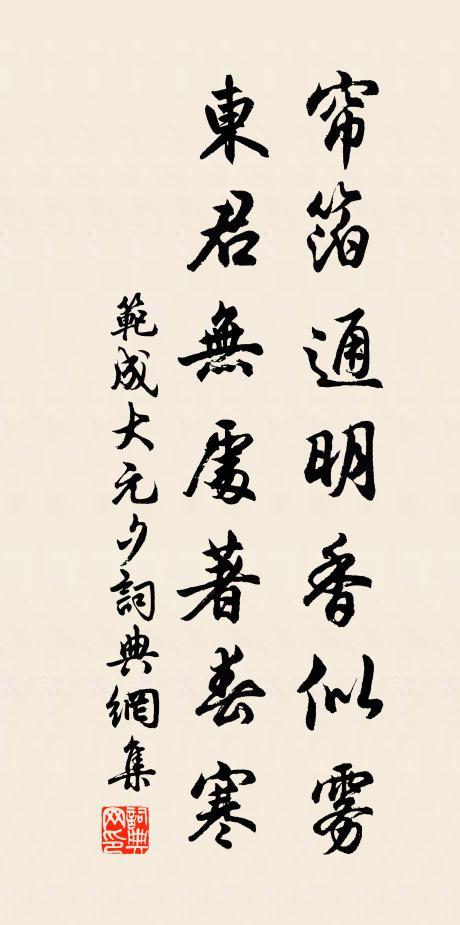 帘箔通明香似雾
東君無處著春寒
範成大元夕詞典網集
詞典網印